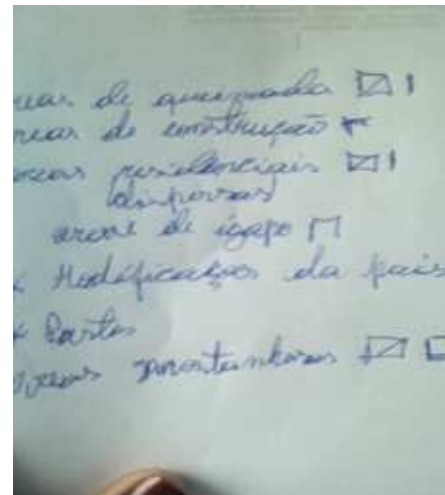 reas de queimada
reas de construção
reas residenciais
dispersas
de igapo
Modificações da pais
reas montanhosas